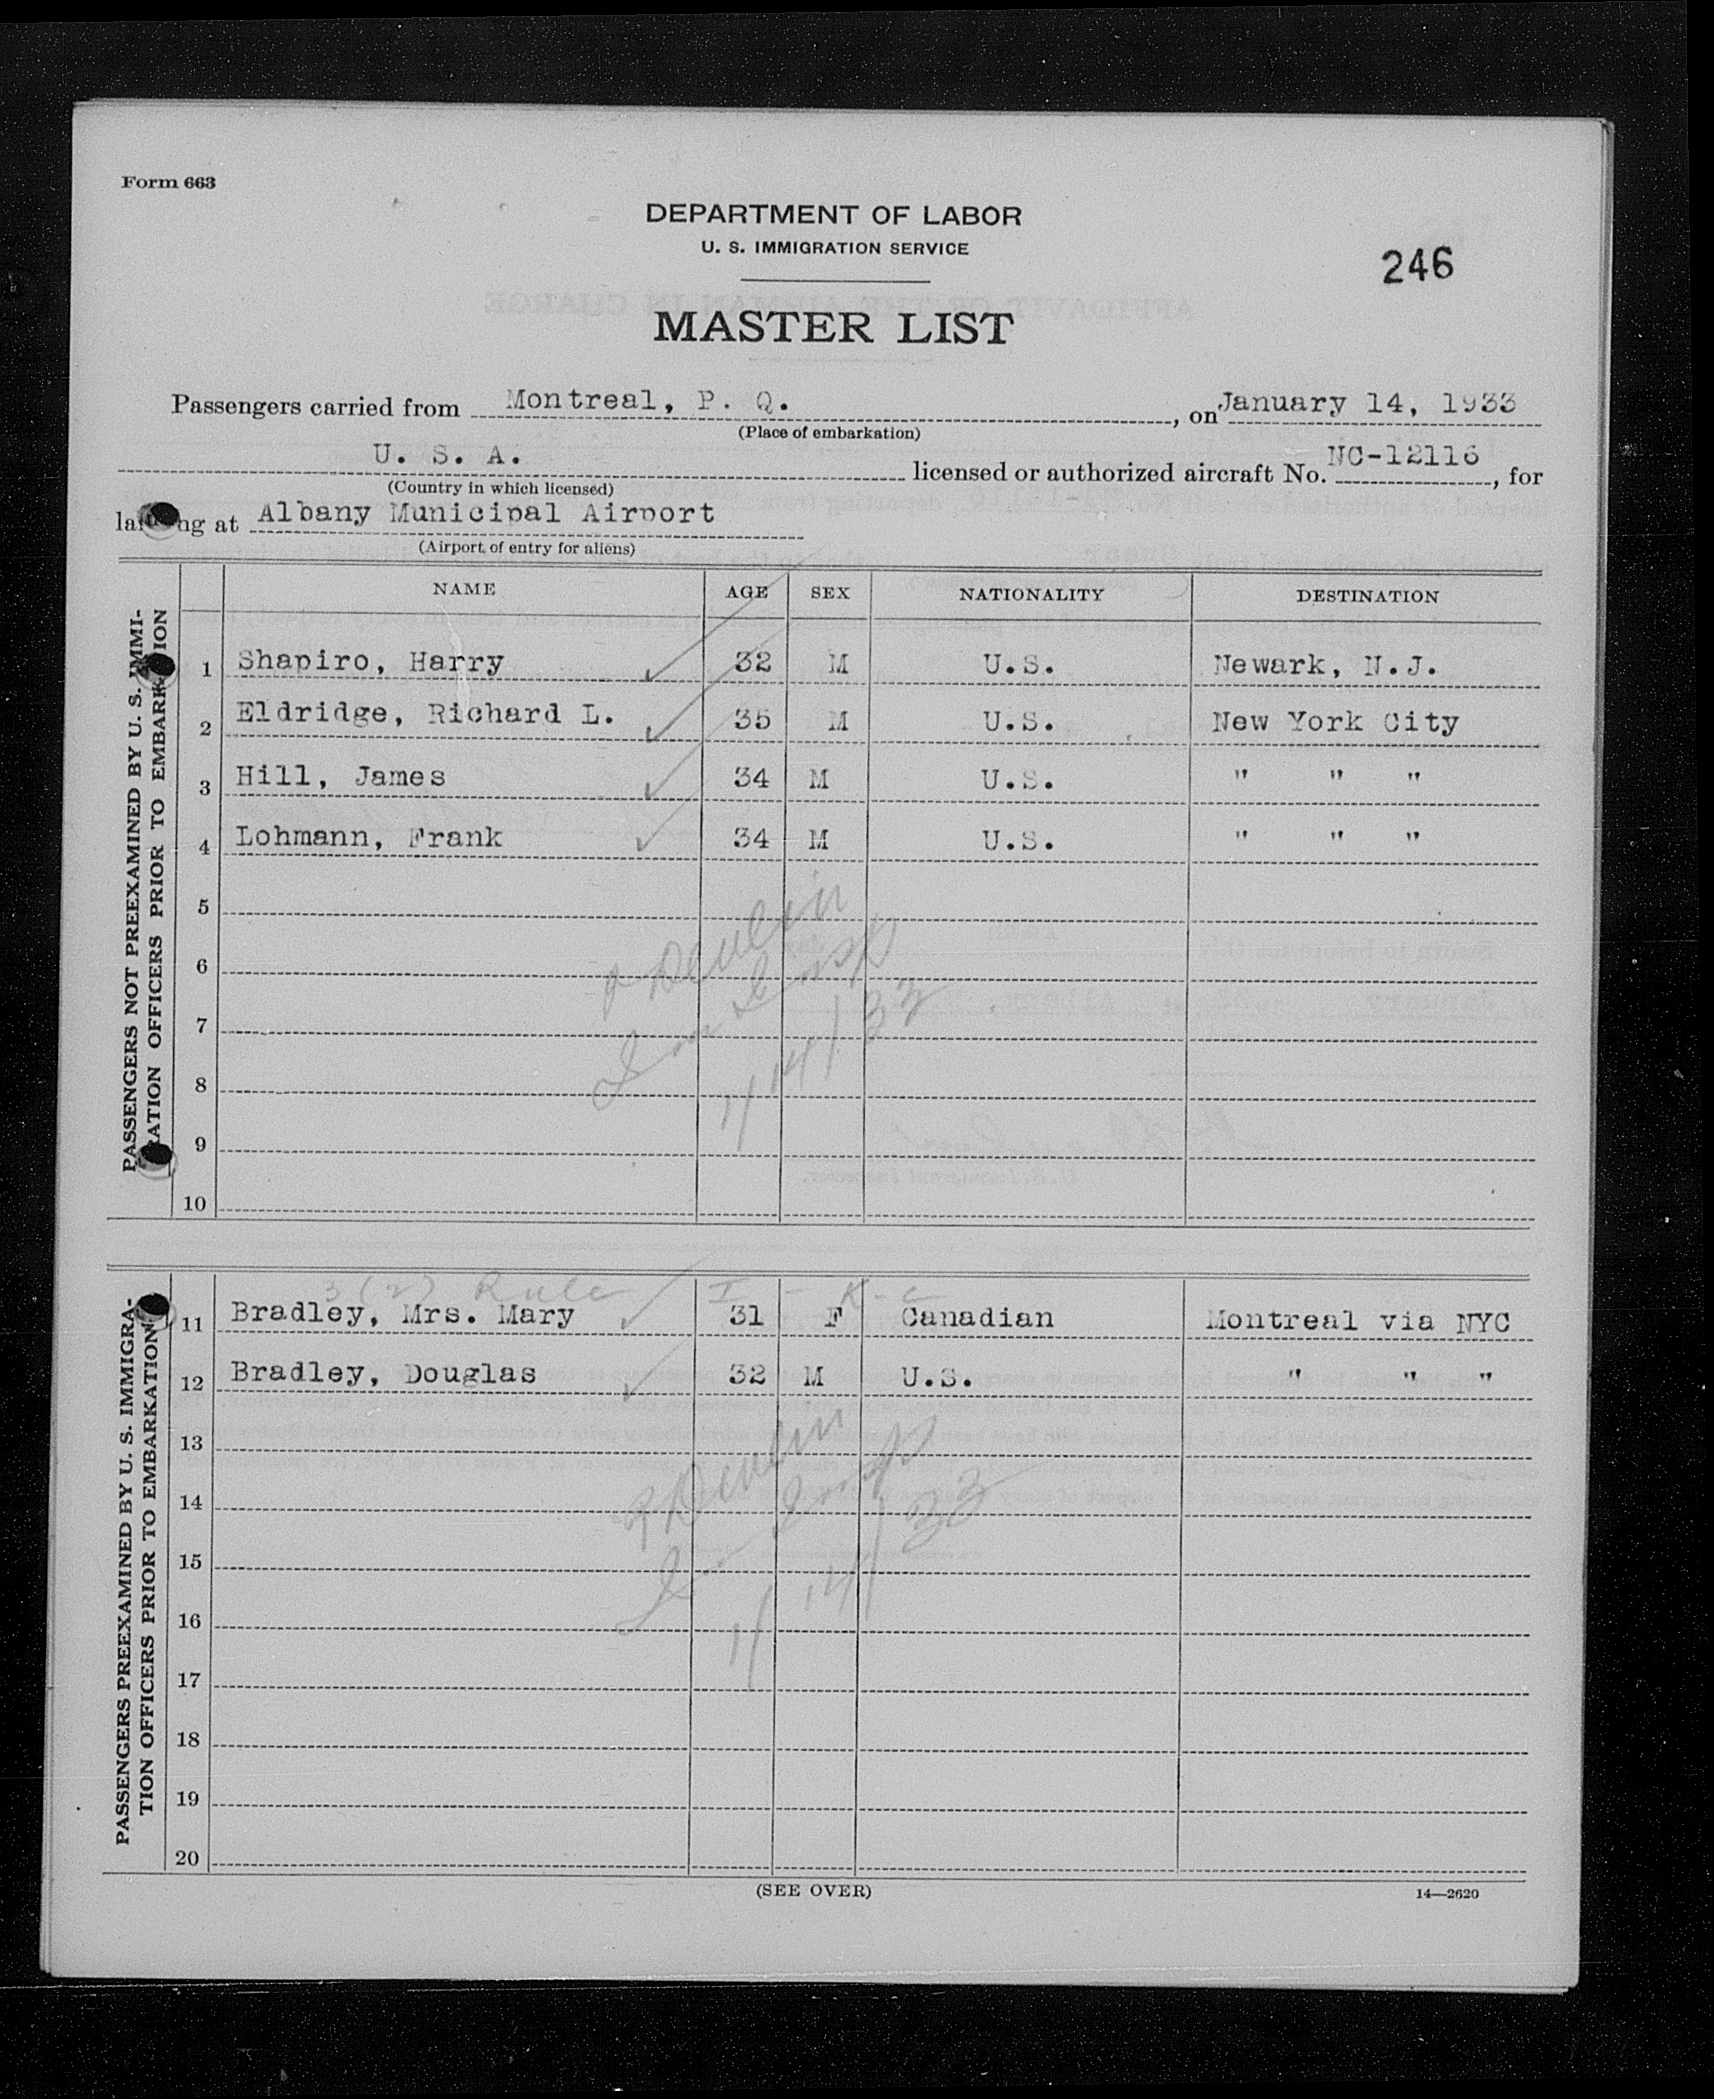 Form 663
DEPARTMENT OF LABOR
U. S. IMMIGRATION SERVICE
246
MASTER LIST
Passengers carried from Montreal, P. Q., on January 14, 1933
(Place of embarkation)
U. S. A. licensed or authorized aircraft No. NC-12116, for
(Country in which licensed)
landing at Albany Municipal Airport
(Airport of entry for aliens)
NAME AGE SEX NATIONALITY DESTINATION
PASSENGERS NOT PREEXAMINED BY U. S. IMMI-
GRATION OFFICERS PRIOR TO EMBARKATION
1 Shapiro, Harry 32 M U.S. Newark, N.J.
2 Eldridge, Richard L. 35 M U.S. New York City
3 Hill, James 34 M U.S. " " "
4 Lohmann, Frank 34 M U.S. " " "
5
6
7
8
9
10
Devlin
1/14/33
PASSENGERS PREEXAMINED BY U. S. IMMIGRA-
TION OFFICERS PRIOR TO EMBARKATION
3(2) Rule I - K-c
11 Bradley, Mrs. Mary 31 F Canadian Montreal via NYC
12 Bradley, Douglas 32 M U.S. " " "
13
14
15
16
17
18
19
20
Devlin
1/14/33
(SEE OVER)
14—2620